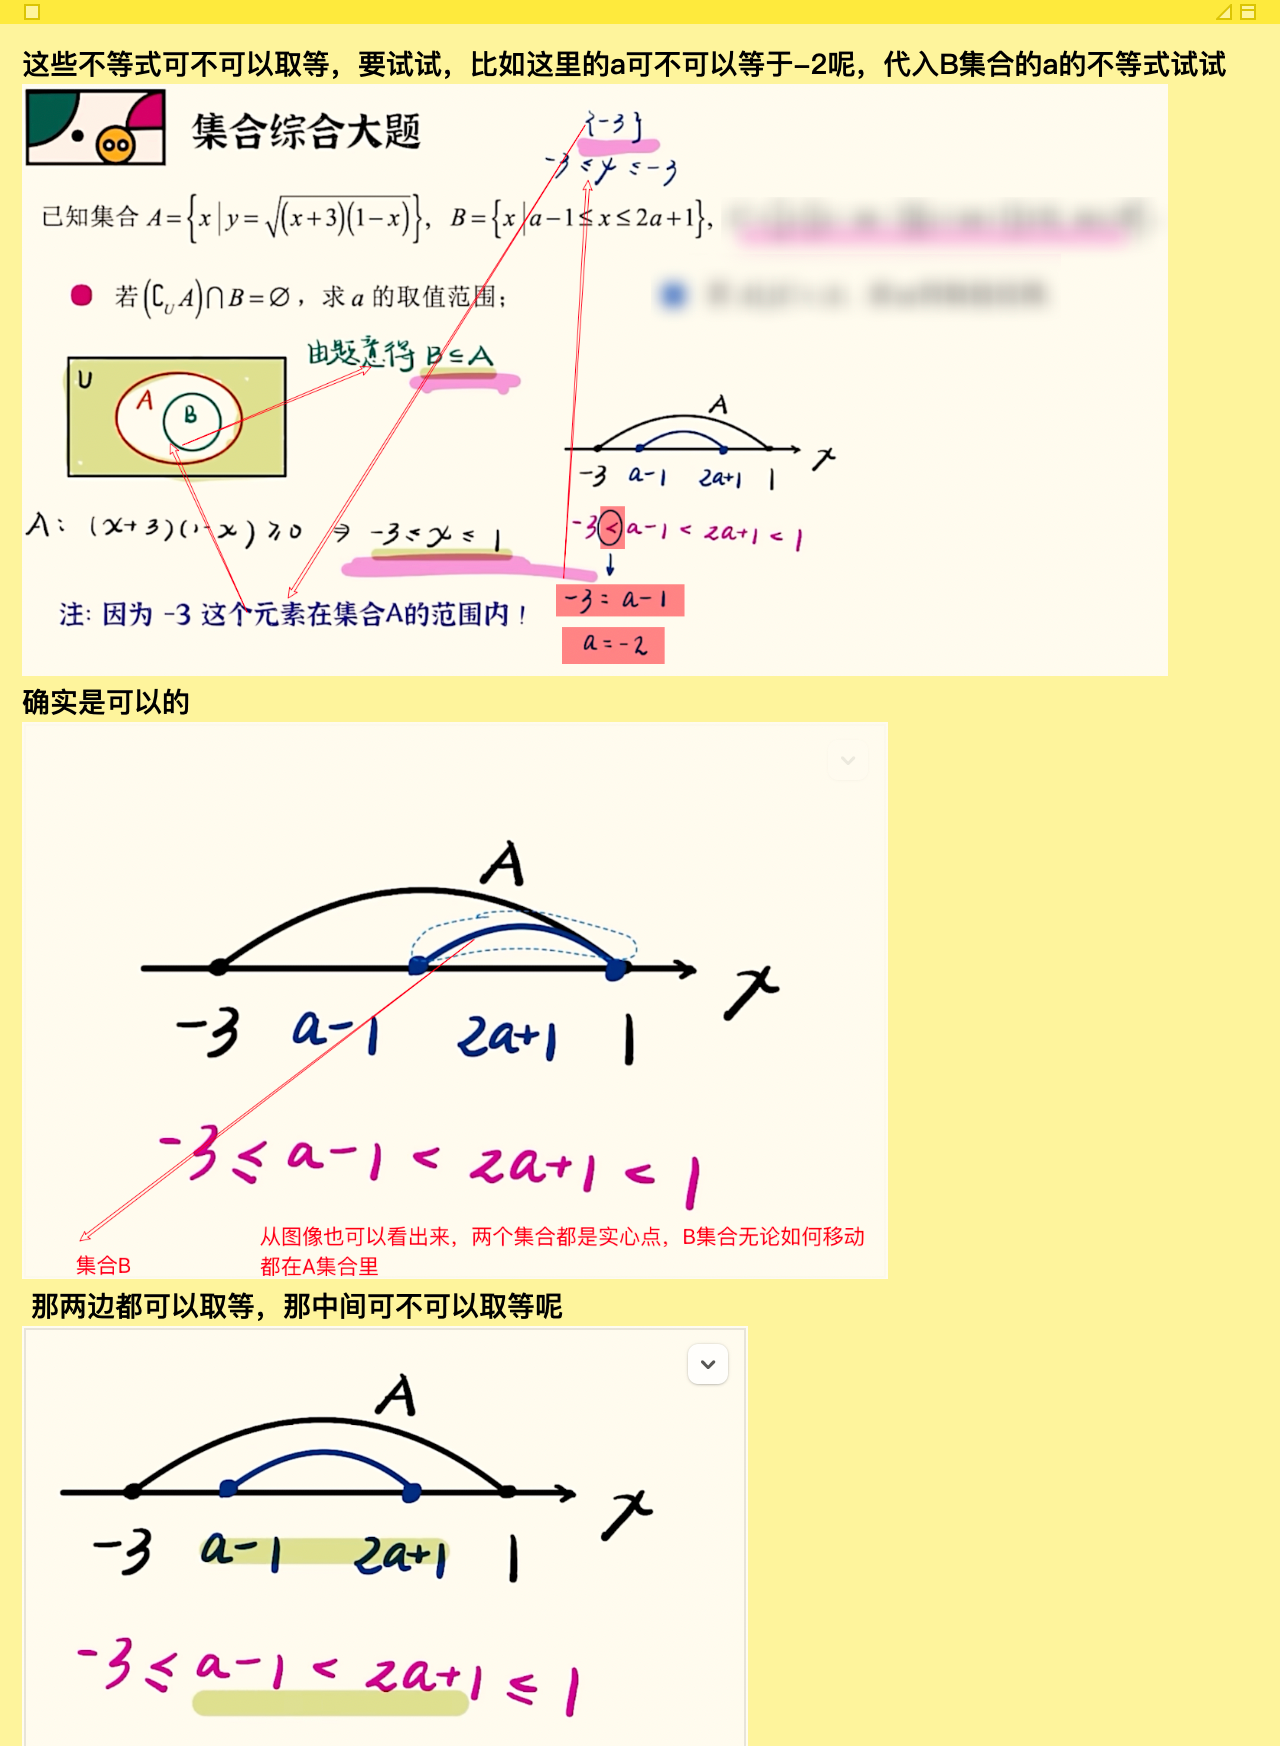 这些不等式可不可以取等，要试试，比如这里的a可不可以等于-2呢，代入B集合的a的不等式试试
集合综合大题
{-3}
-3 ≤ x ≤ -3
已知集合 A={x|y=√(x+3)(1-x)}, B={x|a-1≤x≤2a+1},
若(∁UA)∩B=∅, 求 a 的取值范围;
由题意得 B⊆A
U
A
B
A
-3 a-1 2a+1 1
x
A: (x+3)(1-x)≥0 ⇒ -3≤x≤1
-3<a-1<2a+1<1
↓
-3=a-1
注: 因为 -3 这个元素在集合A的范围内!
a=-2
确实是可以的
A
x
-3 a-1 2a+1 1
-3≤a-1<2a+1<1
从图像也可以看出来，两个集合都是实心点，B集合无论如何移动
都在A集合里
集合B
那两边都可以取等，那中间可不可以取等呢
A
x
-3 a-1 2a+1 1
-3≤a-1<2a+1≤1